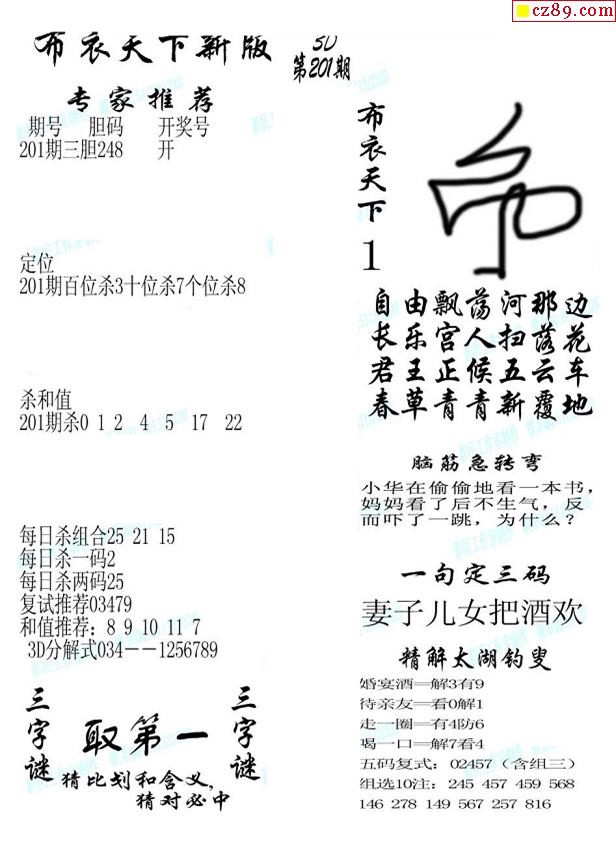 cz89.com
布衣天下新版
3D
第201期
专家推荐
期号 胆码 开奖号
201期三胆248 开
定位
201期百位杀3十位杀7个位杀8
杀和值
201期杀0 1 2 4 5 17 22
每日杀组合25 21 15
每日杀一码2
每日杀两码25
复试推荐03479
和值推荐：8 9 10 11 7
3D分解式034－－1256789
三字谜
取第一
三字谜
猜比划和含义，
猜对必中
布衣天下
1
自由飘荡河那边
长乐宫人扫落花
君王正候五云车
春草青青新覆地
脑筋急转弯
小华在偷偷地看一本书，
妈妈看了后不生气，反
而吓了一跳，为什么？
一句定三码
妻子儿女把酒欢
精解太湖钓叟
婚宴酒══解3有9
待亲友══看0解1
走一圈══有4防6
喝一口══解7看4
五码复式：02457（含组三）
组选10注：245 457 459 568
146 278 149 567 257 816